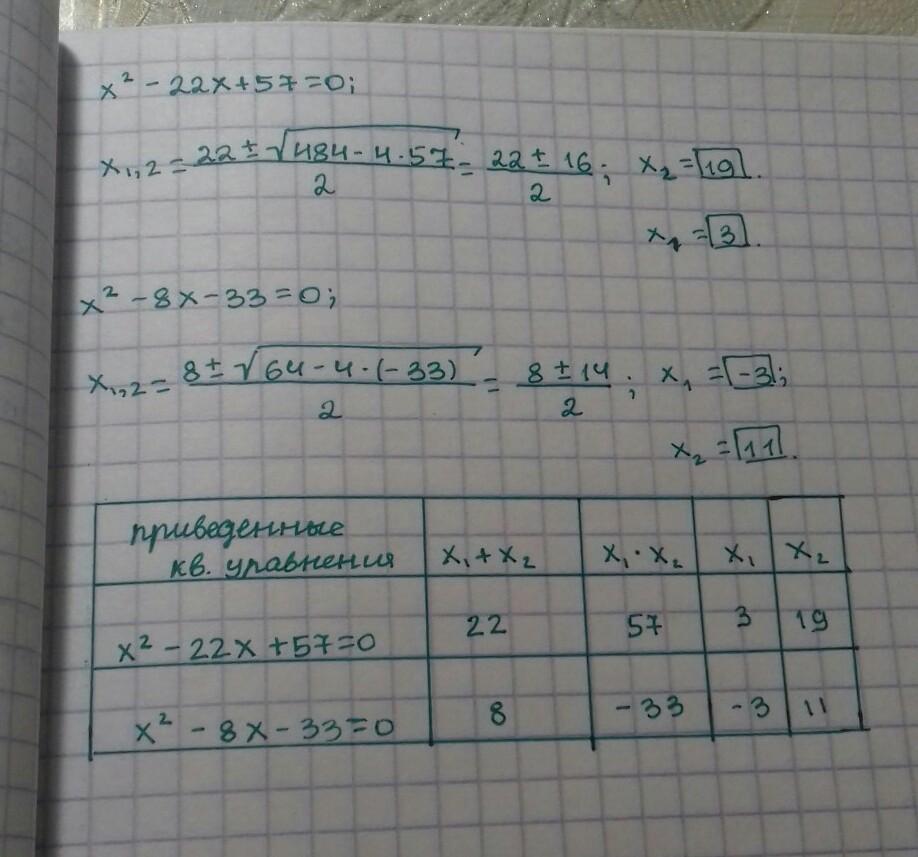 x² - 22x + 57 = 0;
x₁,₂ = (22 ± √(484 - 4·57))/2 = (22 ± 16)/2; x₂ = 19.
x₁ = 3.
x² - 8x - 33 = 0;
x₁,₂ = (8 ± √(64 - 4·(-33)))/2 = (8 ± 14)/2; x₁ = -3;
x₂ = 11.
приведенные
кв. уравнения x₁ + x₂ x₁ · x₂ x₁ x₂
x² - 22x + 57 = 0 22 57 3 19
x² - 8x - 33 = 0 8 -33 -3 11